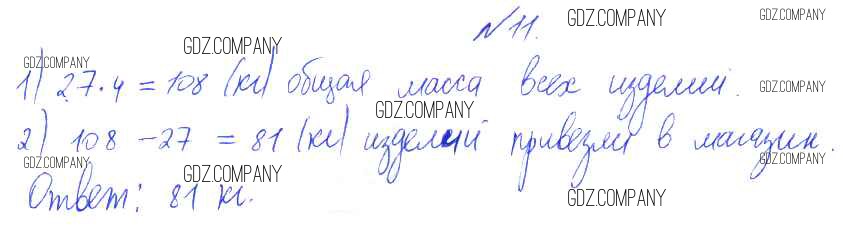 № 11.
1) 27·4 = 108 (кг) общая масса всех изделий.
2) 108 - 27 = 81 (кг) изделий привезли в магазин.
Ответ: 81 кг.
GDZ.COMPANY GDZ.COMPANY GDZ.COMPANY
GDZ.COMPANY GDZ.COMPANY
GDZ.COMPANY
GDZ.COMPANY GDZ.COMPANY
GDZ.COMPANY GDZ.COMPANY